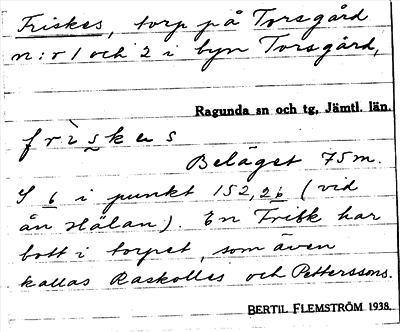 Friskes, torp på Torsgård
n:r 1 och 2 i byn Torsgård,
Ragunda sn och tg, Jämtl. län.
frìskes
Beläget 75 m.
S 6 i punkt 152,26 (vid
ån Hälan). En Frisk har
bott i torpet, som även
kallas Raskolles och Petterssons.
BERTIL FLEMSTRÖM 1938.